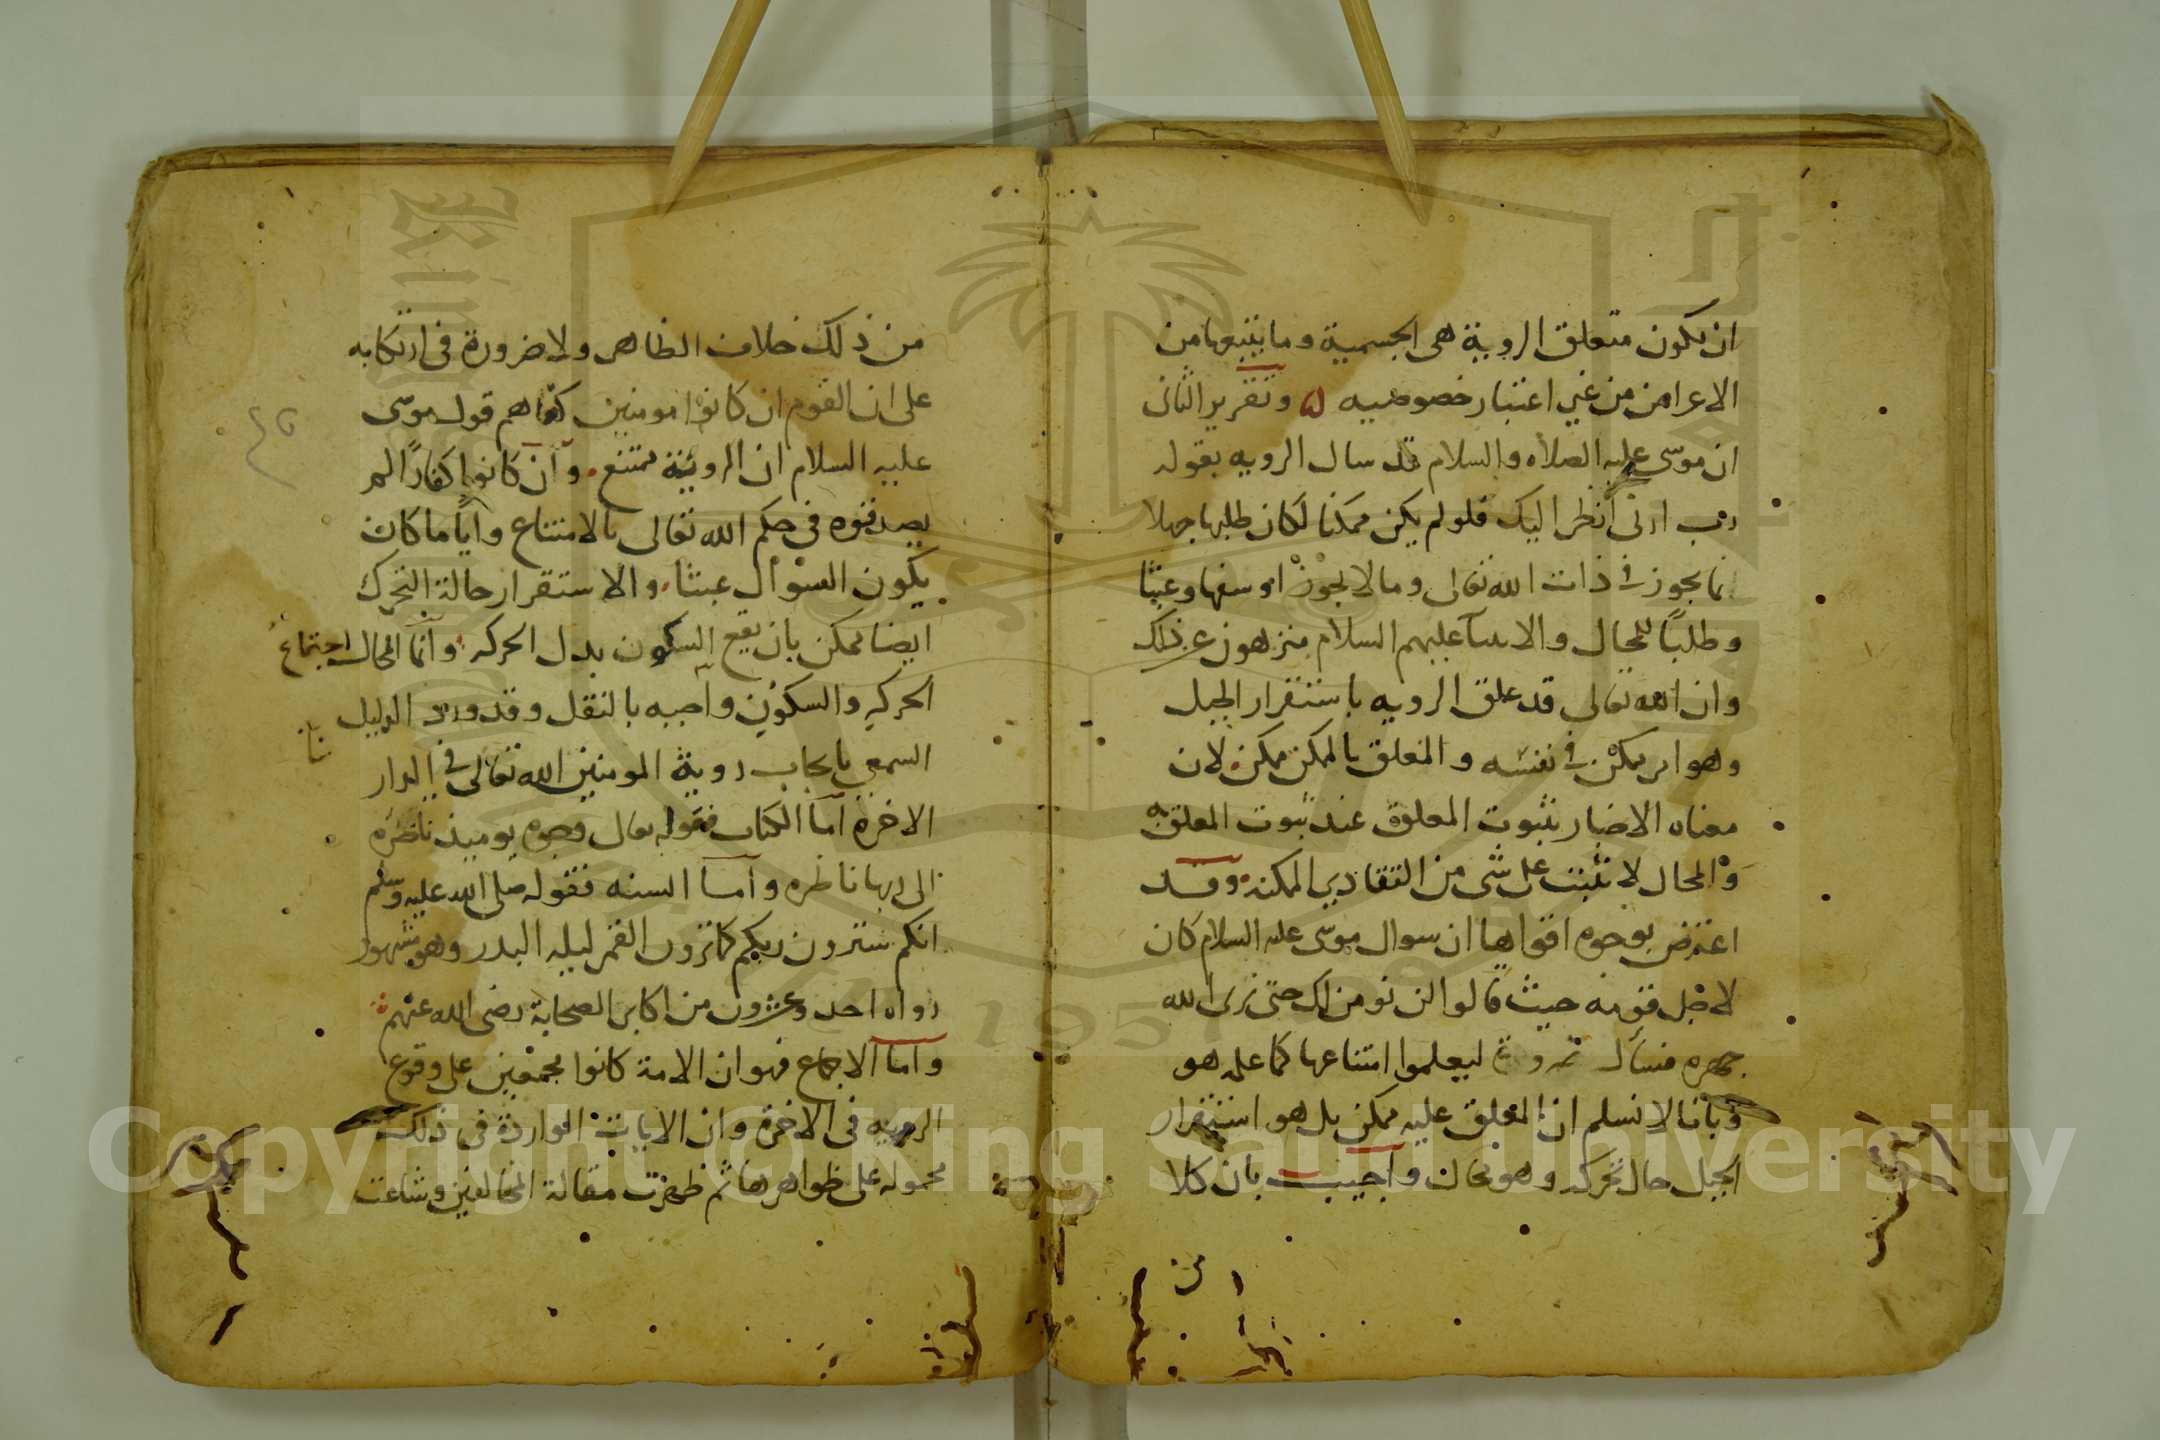 ان يكون متعلق الروية هى الجسمية وما يتبعها من
الاعراض من غير اعتبار خصوصيه وتقرير الثانى
ان موسى عليه الصلاه والسلام قد سال الرويه بقوله
رب ارنى انظر اليك فلو لم يكن ممكنا لكان طلبها جهلا
بما يجوز فى ذات الله تعالى وما لا يجوز او سفها وعبثا
وطلبًا للمحال والانبيآ عليهم السلام منزهون عن ذلك
وان الله تعالى قد علق الرويه باستقرار الجبل
وهو امر ممكن فى نفسه والمعلق بالممكن ممكن لان
معناه الاخبار بثبوت المعلق عند ثبوت المعلق به
والمحال لا يثبت على شى من التقادير الممكنه وقد
اعترض بوجوه اقواها ان سوال موسى عليه السلام كان
لاجل قومه حيث قالوا لن نومن لك حتى نرى الله
جهره فسأل ليعلموا امتناعها كما علمه هو
وبانا لا نسلم ان المعلق عليه ممكن بل هو استقرار
الجبل حال تحركه وهو محال واجيب بان كلا
من
من ذلك خلاف الظاهر ولا ضرورة فى ارتكابه
على ان القوم ان كانوا مومنين كفاهم قول موسى
عليه السلام ان الروية ممتنع وان كانوا كفارًا لم
يصدقوه فى حكم الله تعالى بالامتناع وايًا ما كان
يكون السؤال عبثا والاستقرار حالة التحرك
ايضا ممكن بان يقع السكون بدل الحركه وانما المحال اجتماع
الحركه والسكون واجبه بالنقل وقد ورد الدليل
السمعى بايجاب روية المومنين الله تعالى فى الدار
الاخره اما الكتاب فقوله تعالى وجوه يوميذ ناضره
الى ربها ناظره واما السنه فقوله صلى الله عليه وسلم
انكم سترون ربكم كما ترون القمر ليله البدر وهو مشهور
رواه احد وعشرون من اكابر الصحابة رضى الله عنهم
واما الاجماع فهو ان الامة كانوا مجمعين على وقوع
الرويه فى الاخرة وان الايات الواردة فى ذلك
محموله على ظواهرها ثم ظهرت مقالة المخالفين وشاعت
Copyright © King Saud University
1957